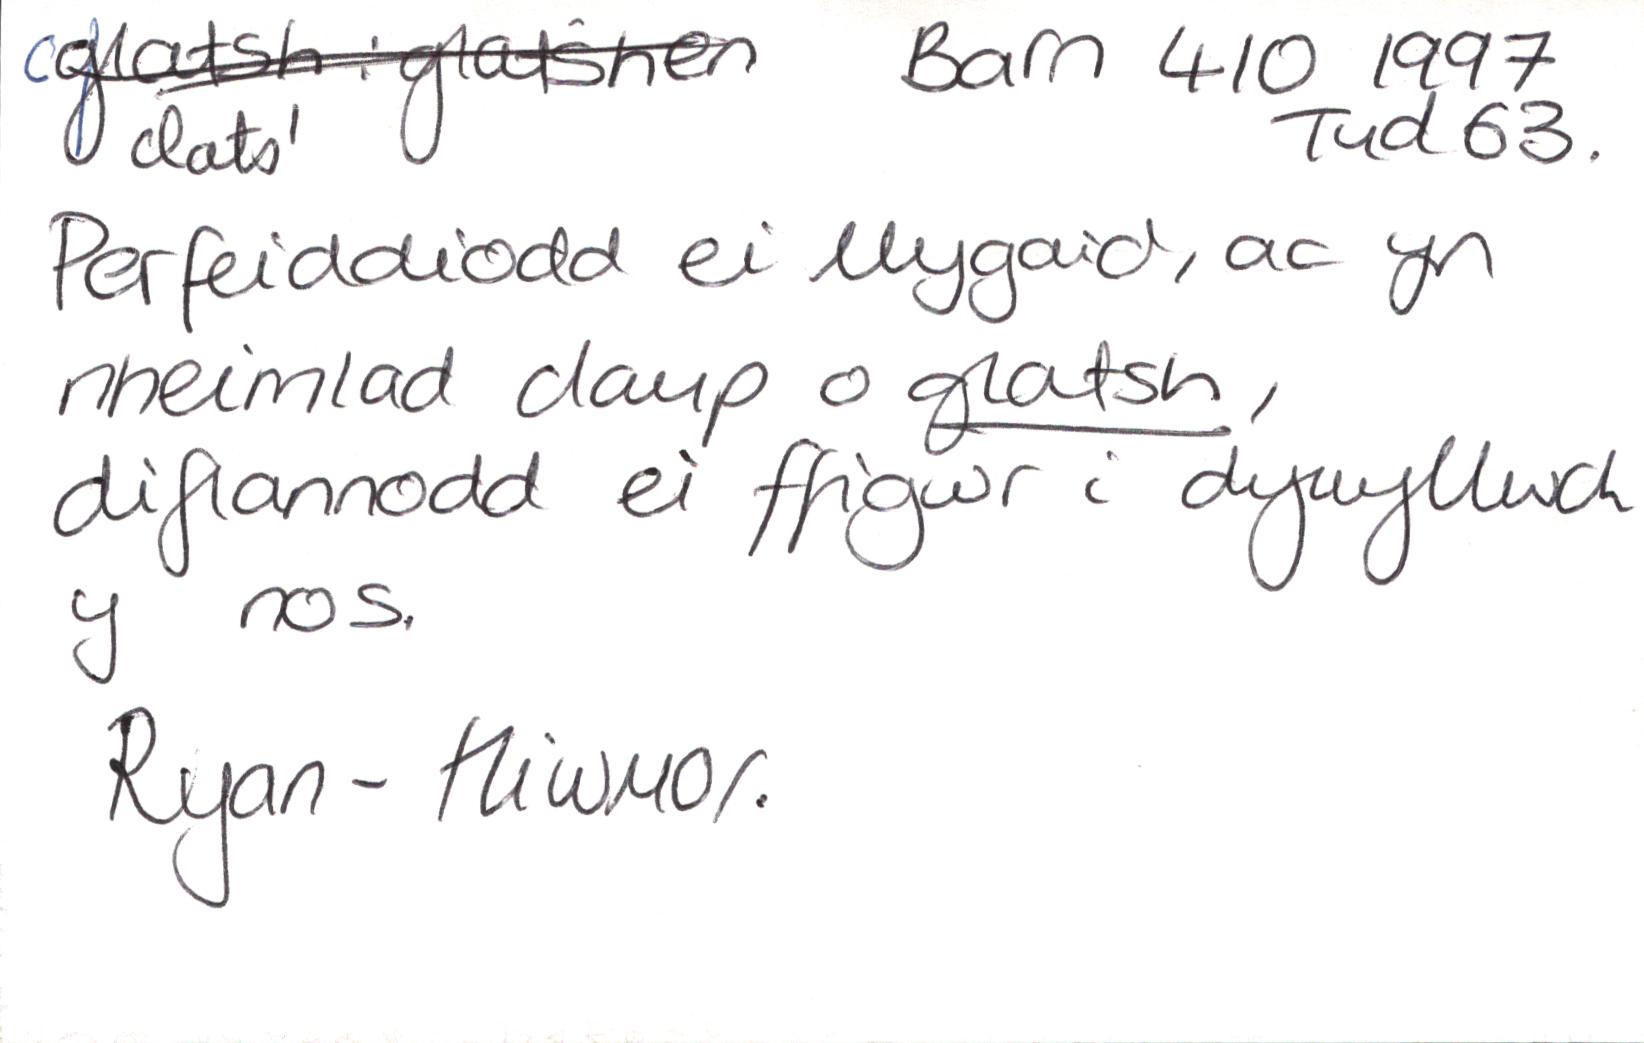 glatsh : glatshen Barn 410 1997
clats¹ Tud 63.
Perfeiddiodd ei llygaid, ac yn
nheimlad clamp o glatsh,
diflannodd ei ffigwr i dywyllwch
y nos.
Ryan - Hiwmor.